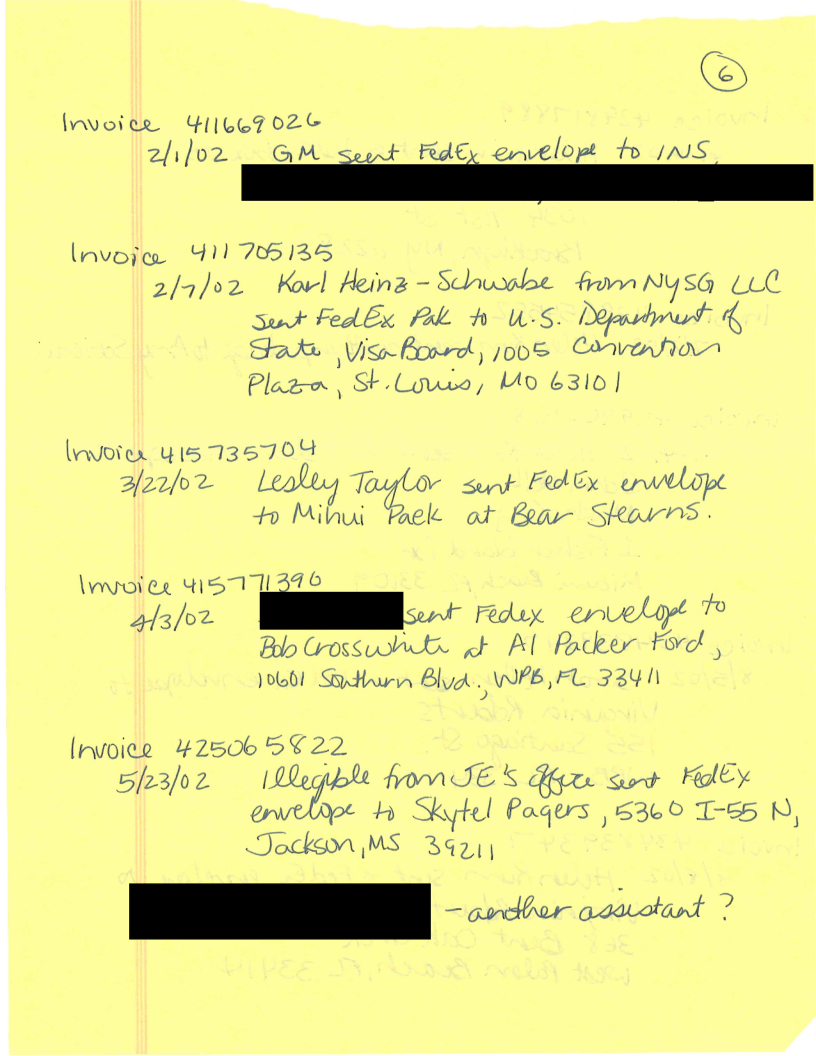 6
Invoice 411669026
2/1/02 GM sent FedEx envelope to INS,
Invoice 411705135
2/7/02 Karl Heinz-Schwabe from NYSG LLC
sent FedEx Pak to U.S. Department of
State, Visa Board, 1005 Convention
Plaza, St. Louis, MO 63101
Invoice 415735704
3/22/02 Lesley Taylor sent FedEx envelope
to Mihui Paek at Bear Stearns.
Invoice 415771390
4/3/02 sent Fedex envelope to
Bob Crosswhite at Al Packer Ford,
10601 Southern Blvd., WPB, FL 33411
Invoice 425065822
5/23/02 Illegible from JE's office sent FedEx
envelope to Skytel Pagers, 5360 I-55 N,
Jackson, MS 39211
- another assistant?